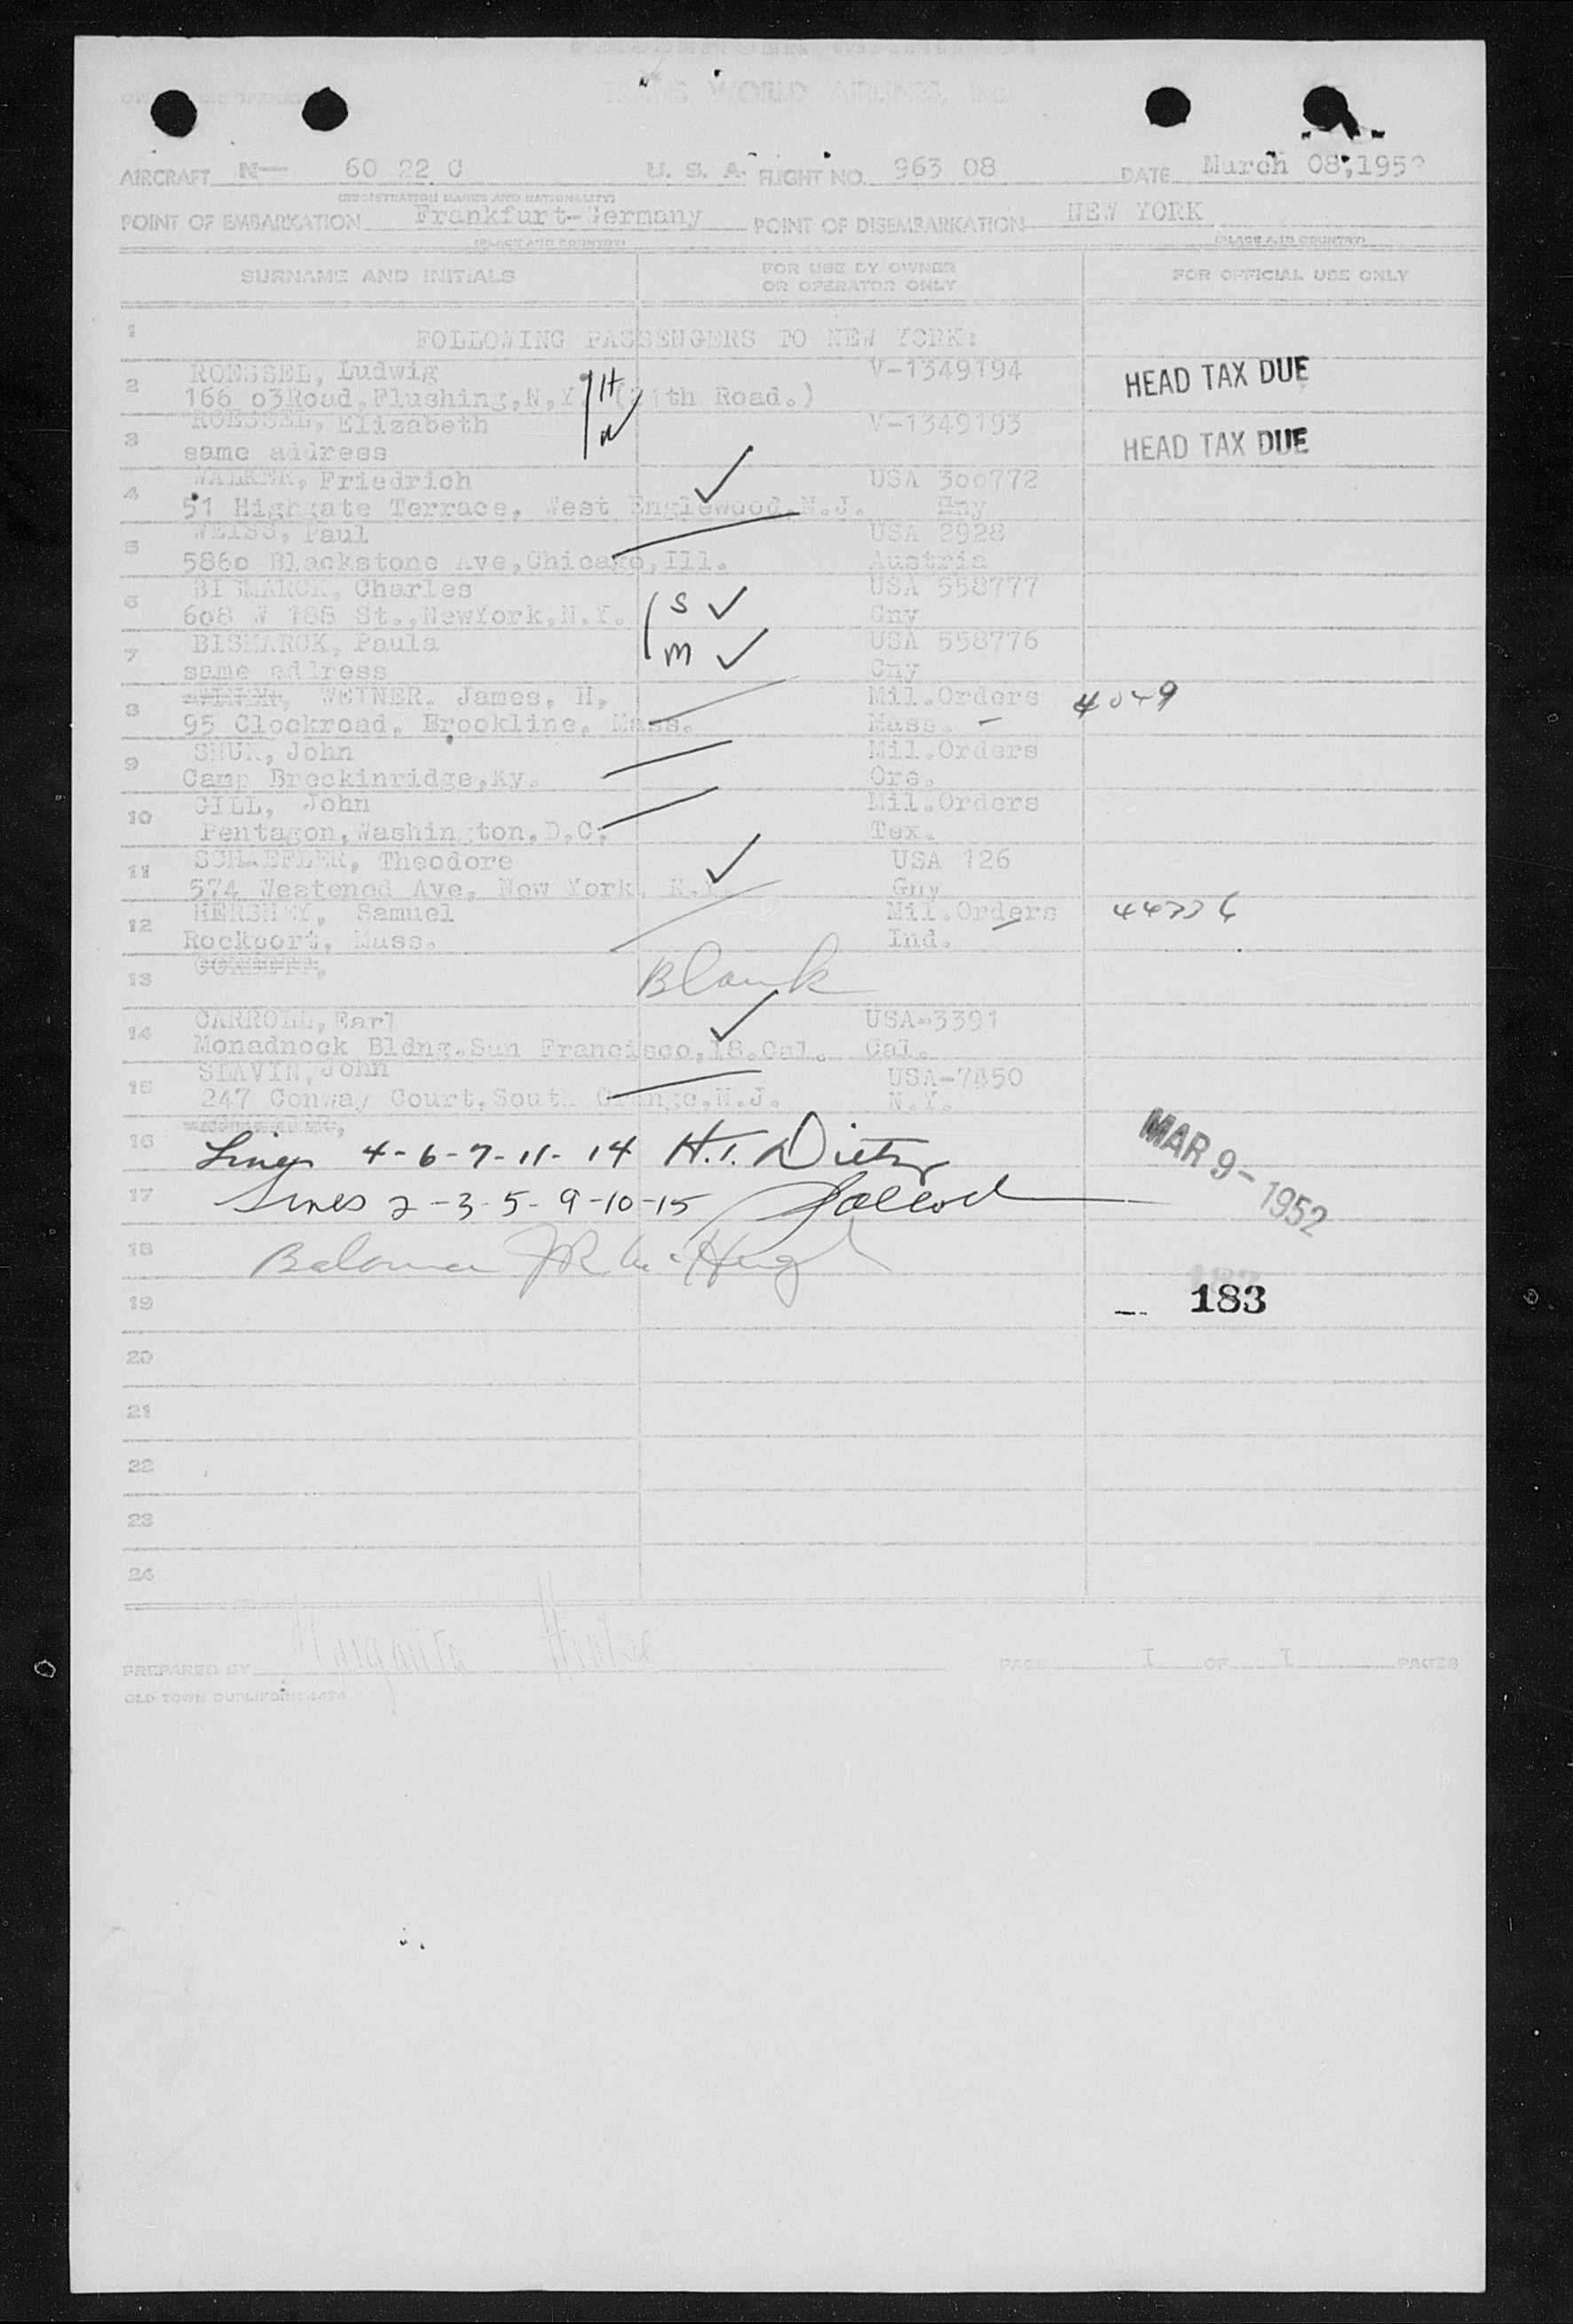 PASSENGER MANIFEST
TRANS WORLD AIRLINES, INC.
AIRCRAFT N— 60 22 C U. S. A. FLIGHT NO. 963 08 DATE March 08,1952
(REGISTRATION MARKS AND NATIONALITY)
POINT OF EMBARKATION Frankfurt-Germany POINT OF DISEMBARKATION NEW YORK
(PLACE AND COUNTRY) (PLACE AND COUNTRY)
SURNAME AND INITIALS FOR USE BY OWNER OR OPERATOR ONLY FOR OFFICIAL USE ONLY
1 FOLLOWING PASSENGERS TO NEW YORK:
2 ROESSEL, Ludwig H V-1349194 HEAD TAX DUE
166 03Road,Flushing,N,Y. th Road.)
3 ROESSEL, Elizabeth V-1349193 HEAD TAX DUE
same address
4 Friedrich USA 300772
51 Highgate Terrace, West Englewood,N.J. Gny
5 WEISS, Paul USA 2928
5860 Blackstone Ave,Chicago,Ill. Austria
6 BISMARCK, Charles S USA 558777
608 W 188 St.,NewYork,N.Y. Gny
7 BISMARCK, Paula M USA 558776
same address Gny
8 WEINER, James, H. Mil.Orders
95 Clockroad, Brookline, Mass. Mass. -
9 John Mil.Orders
Camp Breckinridge,Ky. Ore.
10 GILL, John Mil.Orders
Pentagon,Washington,D,C, Tex.
11 Theodore USA 126
574 Westened Ave, New York, N.Y. Gny
12 HERSHEY, Samuel Mil.Orders
Rockport, Mass. Ind.
13 Blank
14 CARROLL,Earl USA-3391
Monadnock Bldng.San Francisco,18.Cal. Cal.
15 SLAVIN,John
247 Conway Court,South Orange,N.J. N.Y.
16 Lines 4-6-7-11-14 H.T.
MAR 9-1952
17 Lines 2-3-5-9-10-15
18
19 183
20
21
22
23
24
PREPARED BY PAGE I OF I PAGES
OLD TOWN